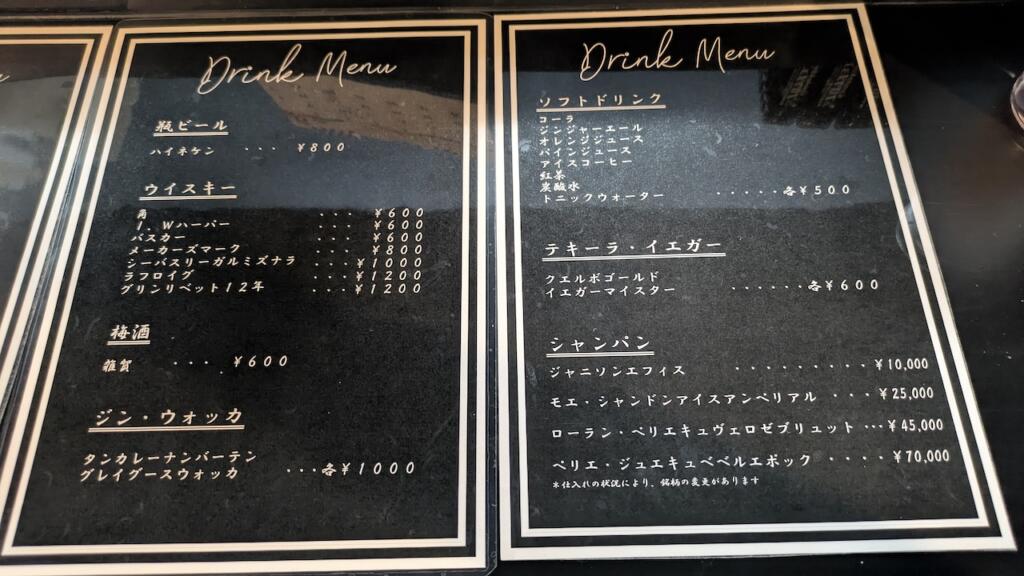 Drink Menu
瓶ビール
ハイネケン ··· ¥800
ウイスキー
角 ··· ¥600
I.Wハーパー ··· ¥600
バスカー ··· ¥600
メーカーズマーク ··· ¥800
シーバスリーガルミズナラ ··· ¥1000
ラフロイグ ··· ¥1200
グリンリベット12年 ··· ¥1200
梅酒
雑賀 ··· ¥600
ジン・ウォッカ
タンカレーナンバーテン
グレイグースウォッカ ···各¥1000
Drink Menu
ソフトドリンク
コーラ
ジンジャーエール
オレンジジュース
パインジュース
アイスコーヒー
紅茶
炭酸水
トニックウォーター ······各¥500
テキーラ・イエガー
クエルボゴールド
イエガーマイスター ······各¥600
シャンパン
ジャニソンエフィス ·········¥10,000
モエ・シャンドンアイスアンペリアル ····¥25,000
ローラン・ペリエキュヴェロゼブリュット ···¥45,000
ペリエ・ジュエキュベベルエポック ····¥70,000
*仕入れの状況により、銘柄の変更があります